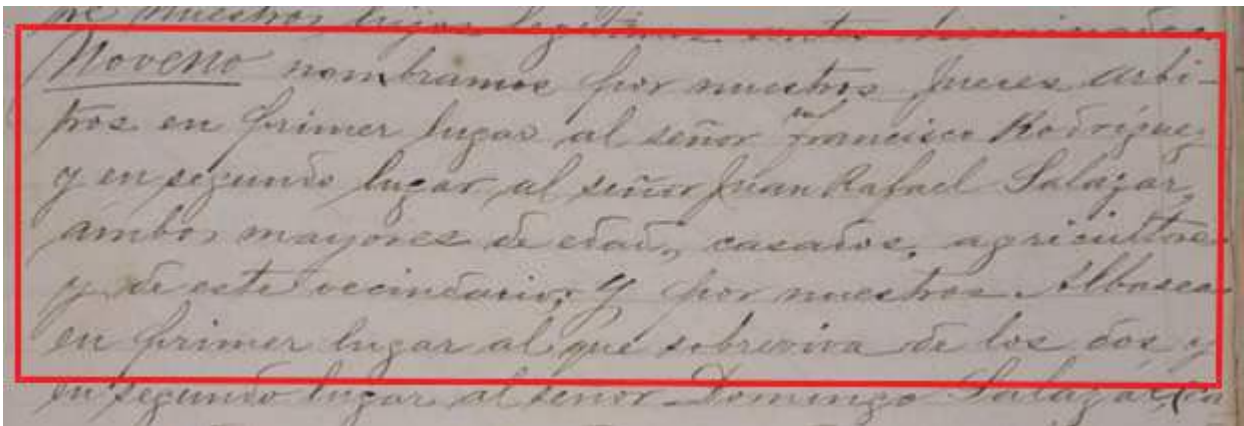 de nuestros hijos legítimos antes denominados
Noveno nombramos por nuestros Jueces arbi-
tros en primer lugar al señor Francisco Rodríguez
y en segundo lugar al señor Juan Rafael Salazar,
ambos mayores de edad, casados, agricultores
y de este vecindario; Y por nuestros Albaceas
en primer lugar al que sobreviva de los dos y
en segundo lugar al señor Domingo Salazar, ca